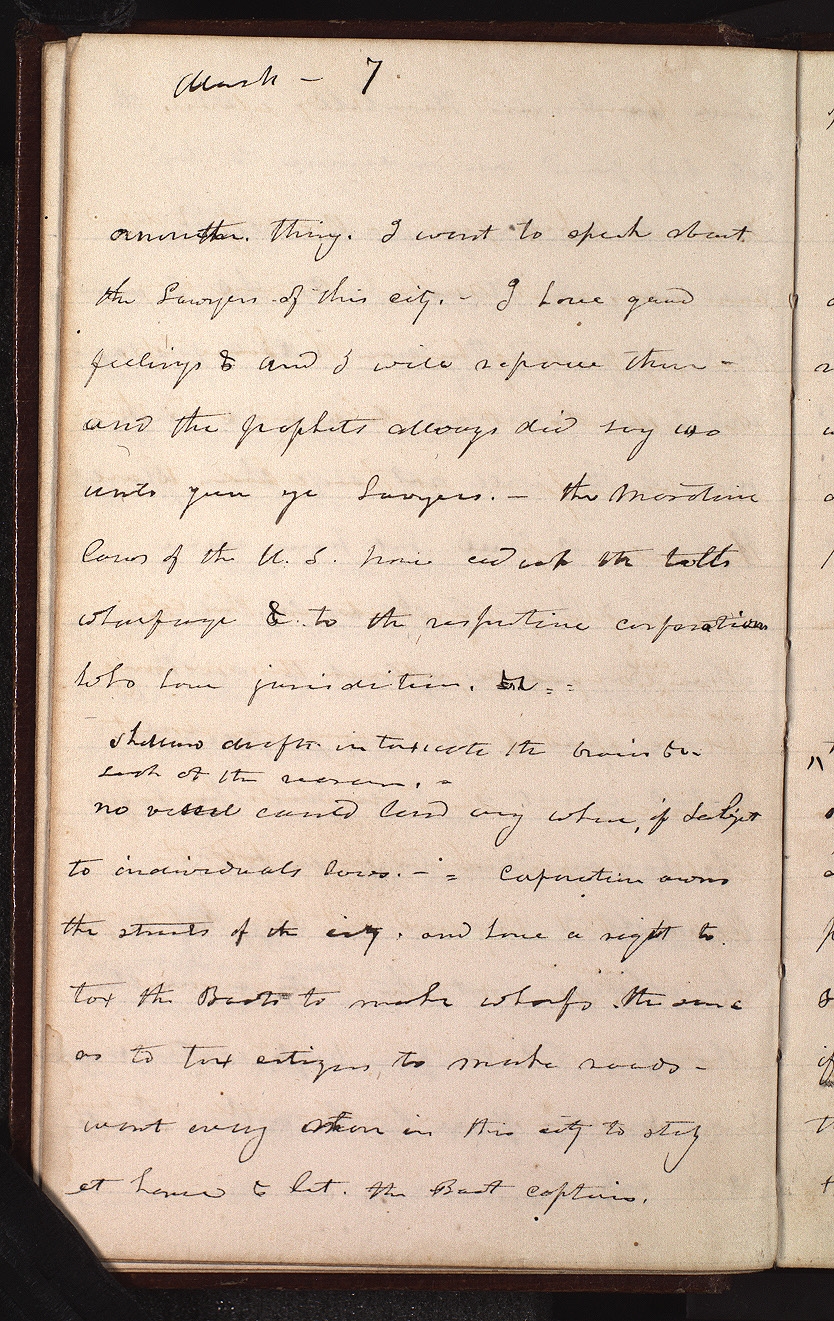 March – 7
another. thing. I want to speak about
the Lawyers of this city. – I have good
feelings & and I will reprove them –
and the prophets always did say wo
unto you ye Lawyers. – the Maratime
laws of the U. S. have ceded up the tolls
wharfage & to the respective corporations
who have jurisdiction. =
shallow drafts intoxicate the brain &
each of the
no vessel could land any where, if subject
to individuals laws. – = Corporation owns
the streets of the city. and have a right to
tax the Boats to make wharfs. the same
as to tax citizens to make roads –
want every man in this city to stay
at home & let. the Boat captains.